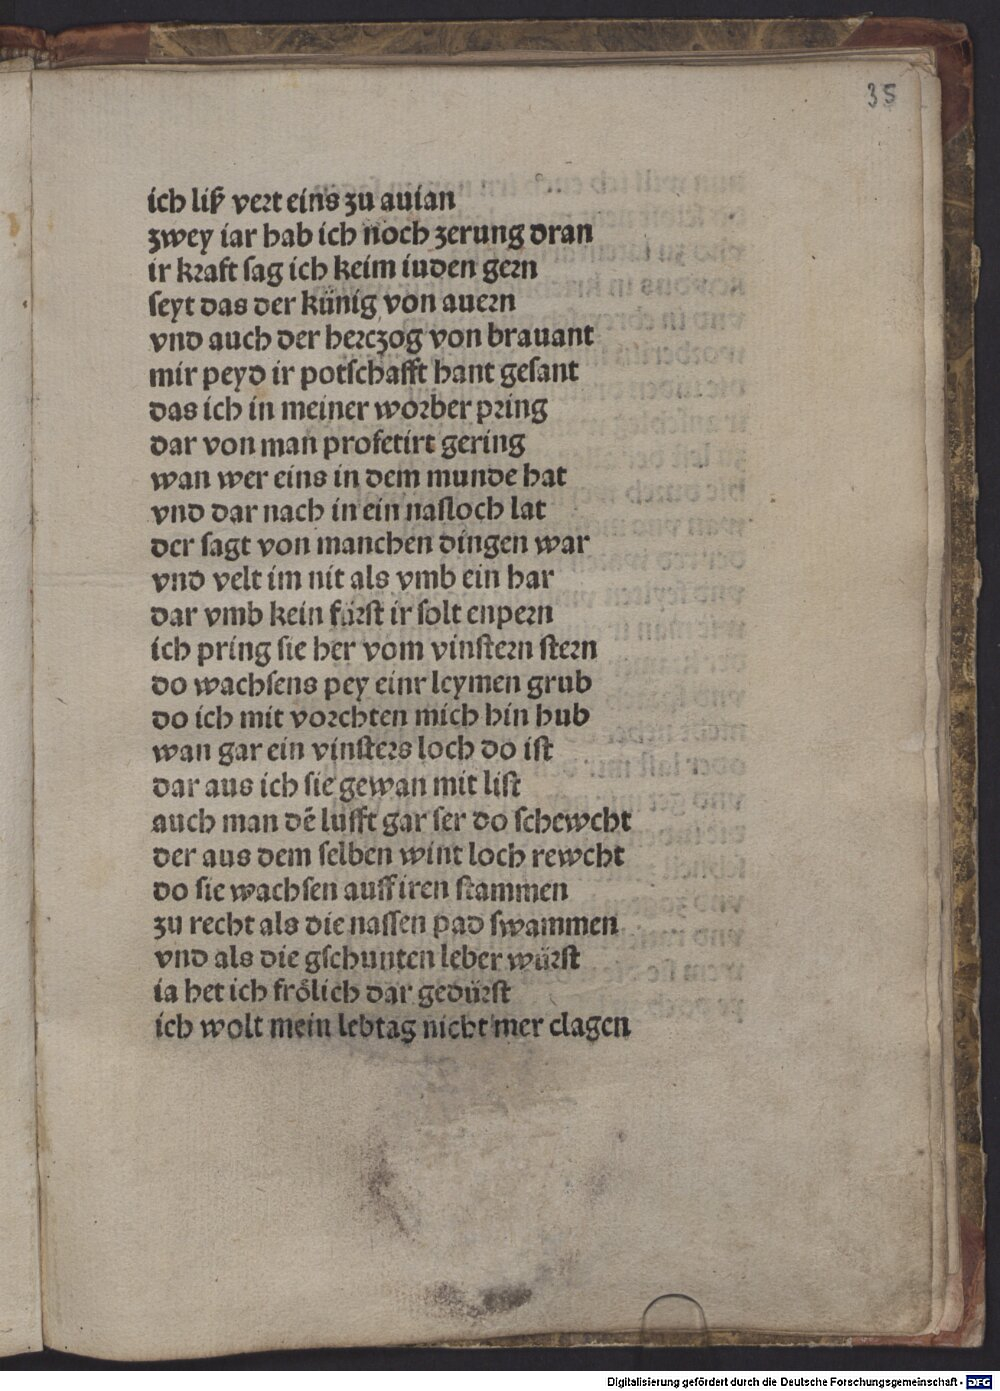 35
ich liß vert eins zu auian
zwey iar hab ich noch zerung dran
ir kraft sag ich keim iuden gern
seyt das der künig von auern
vnd auch der herczog von brauant
mir peyd ir potschafft hant gesant
das ich in meiner worber pring
dar von man profetirt gering
wan wer eins in dem munde hat
vnd dar nach in ein nasloch lat
der sagt von manchen dingen war
vnd velt im nit als vmb ein har
dar vmb kein fürst ir solt enpern
ich pring sie her vom vinstern stern
do wachsens pey einr leymen grub
do ich mit vorchten mich hin hub
wan gar ein vinsters loch do ist
dar aus ich sie gewan mit list
auch man dē lufft gar ser do schewcht
der aus dem selben wint loch rewcht
do sie wachsen auff iren stammen
zu recht als die nassen pad swammen
vnd als die gschunten leber würst
ia het ich frölich dar gedürst
ich wolt mein lebtag nicht mer clagen
Digitalisierung gefördert durch die Deutsche Forschungsgemeinschaft - DFG